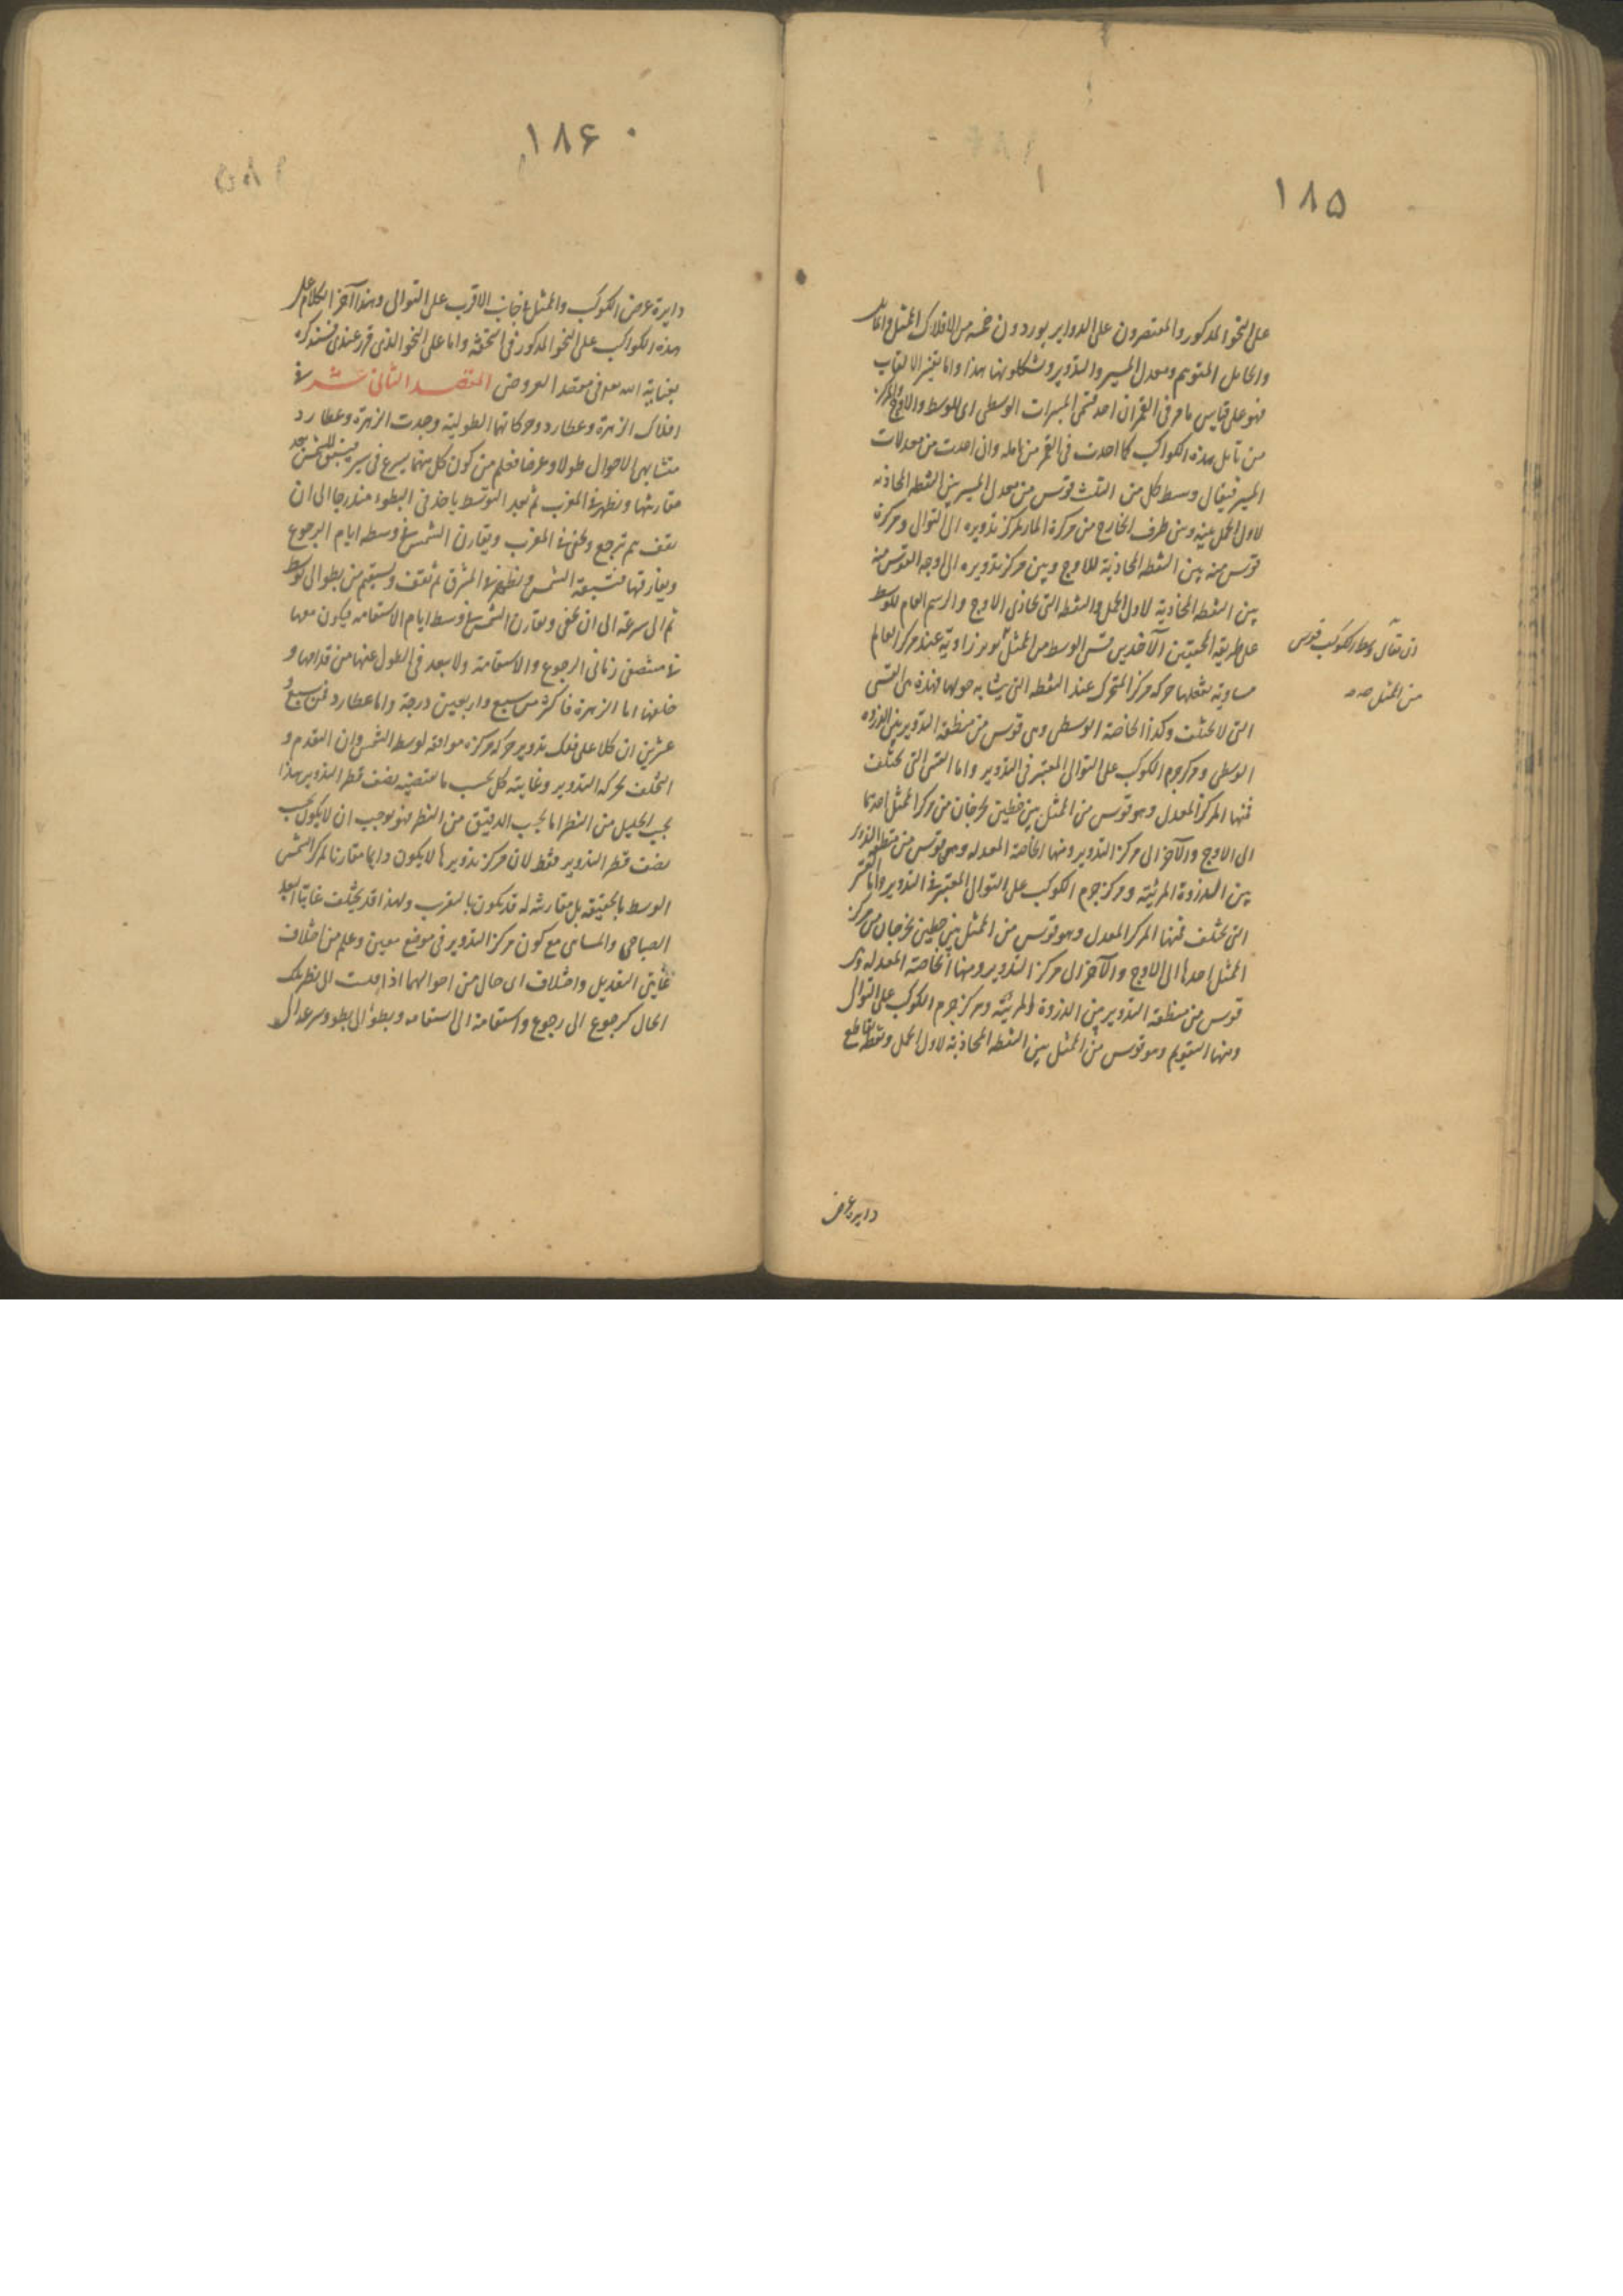 ١٨۵
على النحو المذكور والمقتصرون على الدواير يوردون خمسة من الافلاك الممثل والمائل
والحامل المتوهم ومعدل المسير والتدوير وشكلوها هذا واما تفسير الالقاب
فهو على قياس ما مر فى القمر ان اخذ قسى المسيرات الوسطى اى الوسط والاوج والمركز
من مائل هذه الكواكب كما اخذت فى القمر من مائله وان اخذت من معدلات
المسير فيقال وسط كل من الثلث قوس من معدل المسير بين النقطة المحاذية
لاول الحمل منه وبين طرف الخارج من مركزه المار بمركز تدويره الى التوالى ومركزه
قوس منه بين النقطة المحاذية للاوج وبين مركز تدويره الى والاوج القوس منه
بين النقطة المحاذية لاول الحمل والنقطة التى تحاذى الاوج والرسم العام للوسط
على طريقة المحققين الآخذين قسى الوسط من الممثل توتر زاوية عند مركز العالم
مساوية لفعلها حركة مركز المتحرك عند النقطة التى يتشابه حولها فهذه هى القسى
التى لا تختلف وكذا الخاصة الوسطى وهى قوس من منطقة التدوير بين الذروة
الوسطى ومركز جرم الكوكب على التوالى المعتبر فى التدوير واما القسى التى تختلف
فمنها المركز المعدل وهو قوس من الممثل بين خطين يخرجان من مركز الممثل احدهما
الى الاوج والآخر الى مركز التدوير ومنها الخاصة المعدلة وهى قوس من منطقة التدوير
بين الذروة المرئية ومركز جرم الكوكب على التوالى المعتبر فى التدوير واما القسى
التى تختلف فمنها المركز المعدل وهو قوس من الممثل بين خطين يخرجان من مركز
الممثل احدها الى الاوج والآخر الى مركز التدوير ومنها الخاصة المعدلة وهى
قوس من منطقة التدوير بين الذروة المرئية ومركز جرم الكوكب على التوالى
ومنها التقويم وهو قوس من الممثل بين النقطة المحاذية لاول الحمل ونقطة تقاطع
ان يقال وسط الكوكب قوس
من الممثل
دايرة عرض
١٨۶
دايرة عرض الكوكب والممثل من جانب الاقرب على التوالى وهذا آخر الكلام على
هذه الكواكب على النحو المذكور فى التحفة واما على النحو الذى قرر عندى فستذكره
بعناية الله تعالى فى مقصد العروض المقصد الثانى عشر فى
افلاك الزهرة وعطارد وحركاتها الطولية وجدت الزهرة وعطارد
متشابهى الاحوال طولا وعرضا فعلم من كون كل منهما يسرع فى سيره فيسبق الشمس بعد
مقارنتها ويظهر فى المغرب ثم بعد التوسط ياخذ فى البطوء متدرجا الى ان
يقف ثم يرجع ويخفى فى المغرب ويقارن الشمس فى وسط ايام الرجوع
ويفارقها فتسبقه الشمس ويظهر فى المشرق ثم يقف ويستقيم من بطو الى توسط
ثم الى سرعة الى ان يخفى ويقارن الشمس فى وسط ايام الاستقامه فيكون معها
فى منتصفى زمانى الرجوع والاستقامة ولا يبعد فى الطول عنها من قدامها و
خلفها اما الزهرة فاكثر من سبع واربعين درجة واما عطارد فمن سبع و
عشرين ان كلا على فلك تدوير حركة مركزه موافقة لوسط الشمس وان التقدم و
التخلف بحركة التدوير وغايته كل بحسب ما يقتضيه نصف قطر التدوير هذا
بحسب الجليل من النظر اما بحسب الدقيق من النظر فهو يوجب ان لا يكون بحسب
نصف قطر التدوير فقط لان مركز تدويرها لا يكون دايما مقارنا لمركز الشمس
الوسط بالحقيقة بل مقارنته له قد يكون بالتقريب ولهذا قد يختلف غايتا البعد
الصباحى والمسائى مع كون مركز التدوير فى موضع معين وعلم من اختلاف
غايتى التعديل واختلاف اى حال من احوالهما اذا قيست الى نظير تلك
الحال كرجوع الى رجوع واستقامة الى استقامه وبطو الى بطو وسرعة الى